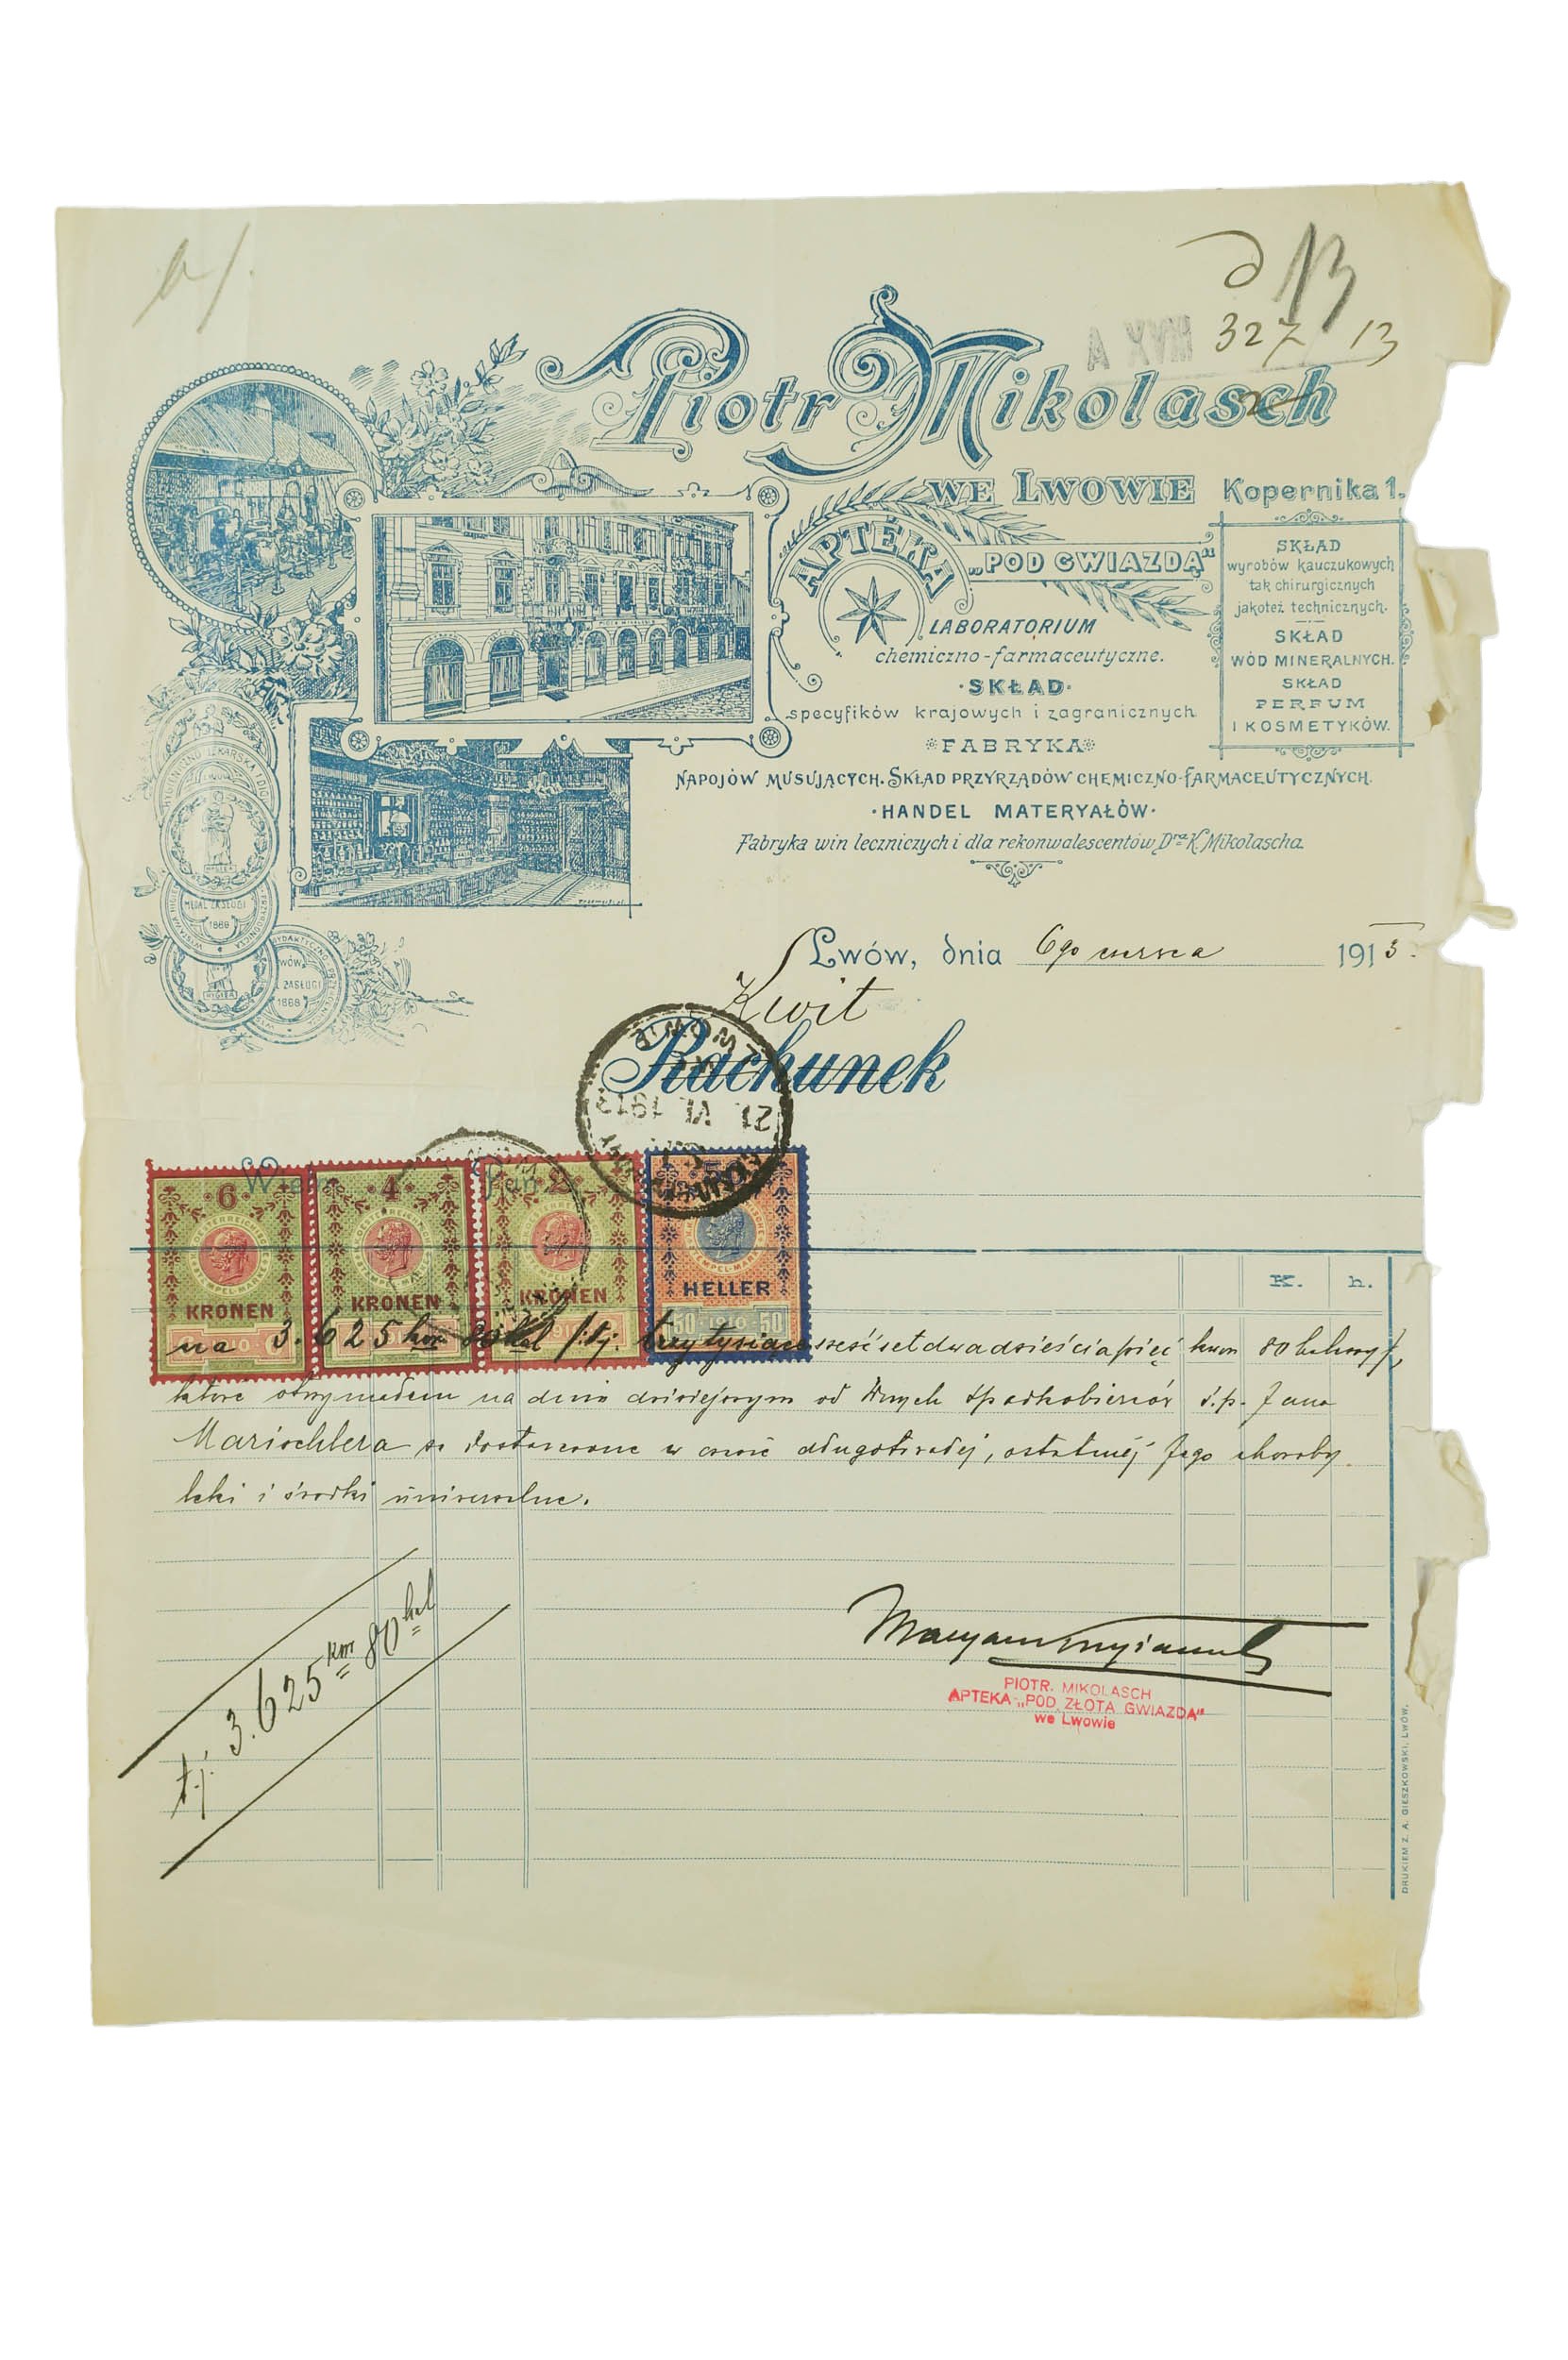 a/.
327/13
Piotr Mikolasch
WE LWOWIE Kopernika 1.
APTEKA „POD GWIAZDĄ"
LABORATORIUM
chemiczno-farmaceutyczne.
·SKŁAD·
specyfików krajowych i zagranicznych
FABRYKA
NAPOJÓW MUSUJĄCYCH. SKŁAD PRZYRZĄDÓW CHEMICZNO-FARMACEUTYCZNYCH.
·HANDEL MATERYAŁÓW·
Fabryka win leczniczych i dla rekonwalescentów Dra K. Mikolascha
SKŁAD
wyrobów kauczukowych
tak chirurgicznych
jakoteż technicznych.
SKŁAD
WÓD MINERALNYCH.
SKŁAD
PERFUM
I KOSMETYKÓW.
MEDAL ZASŁUGI
1888
ZASŁUGI
1888
Lwów, dnia 6go czerwca 1913.
Kwit
Rachunek
21 VI 1913
6 KRONEN
4 KRONEN
2 KRONEN
HELLER
50 1910 50
K. h.
na 3.625 kor 80 hal /: tj. trzy tysiące sześćset dwadzieścia pięć koron 80 halerzy/,
które otrzymałem na dniu dzisiejszym od Wnych Spadkobierców ś.p. Jana
Marischlera za dostarczone w czasie długotrwałej, ostatniej Jego choroby
leki i środki uniwersalne.
tj. 3.625 kor 80 hal
PIOTR. MIKOLASCH
APTEKA „POD ZŁOTA GWIAZDĄ"
we Lwowie
DRUKIEM Z. A. GIESZKOWSKI, LWÓW.